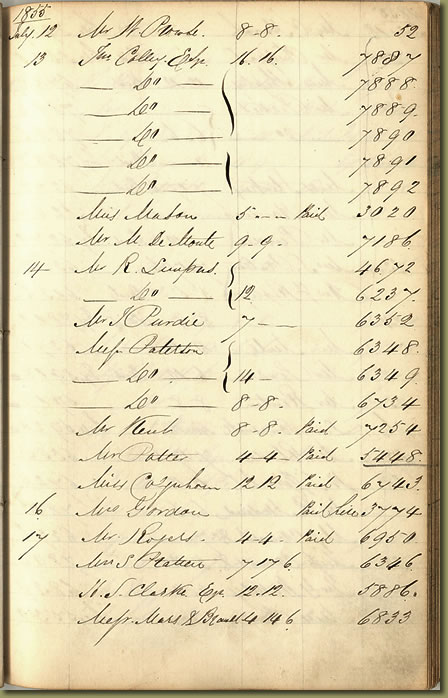 1855
July 12 Mr W 8-8- 52
13 Jas Colley Esq. 16.16. 7887
— Do — 7888
— Do — 7889.
— Do — 7890
— Do — 7891
— Do — 7892
Miss Mason 5 - - - Paid 3020
Mr M. De Monte 9-9- 7186
14 Mr R. 4672
— Do — 12 6237.
Mr J Purdie 7 — 6352
Messrs Paterson 6348.
— Do — 14 - 6349.
— Do — 8-8- 6734
Mr Kent 8-8- Paid 7254
Mr Potter 4-4- Paid 5448.
Miss Colquhoun 12 12 Paid 6743
16 Mrs Gordon Paid 3774
17 Mr Rogers - 4-4- Paid 6950.
Mrs S 7 17 6. 6346
Esq. 12.12. 5886.
Messrs Mars & 4 14 6 6833